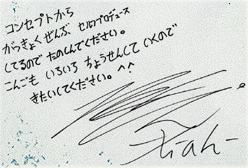 コンセプトから
がっきょくぜんぶ、セルフプロデュース
してるので たのしんでください。
こんごも いろいろ ちょうせんして いくので
きたいしてください。^^